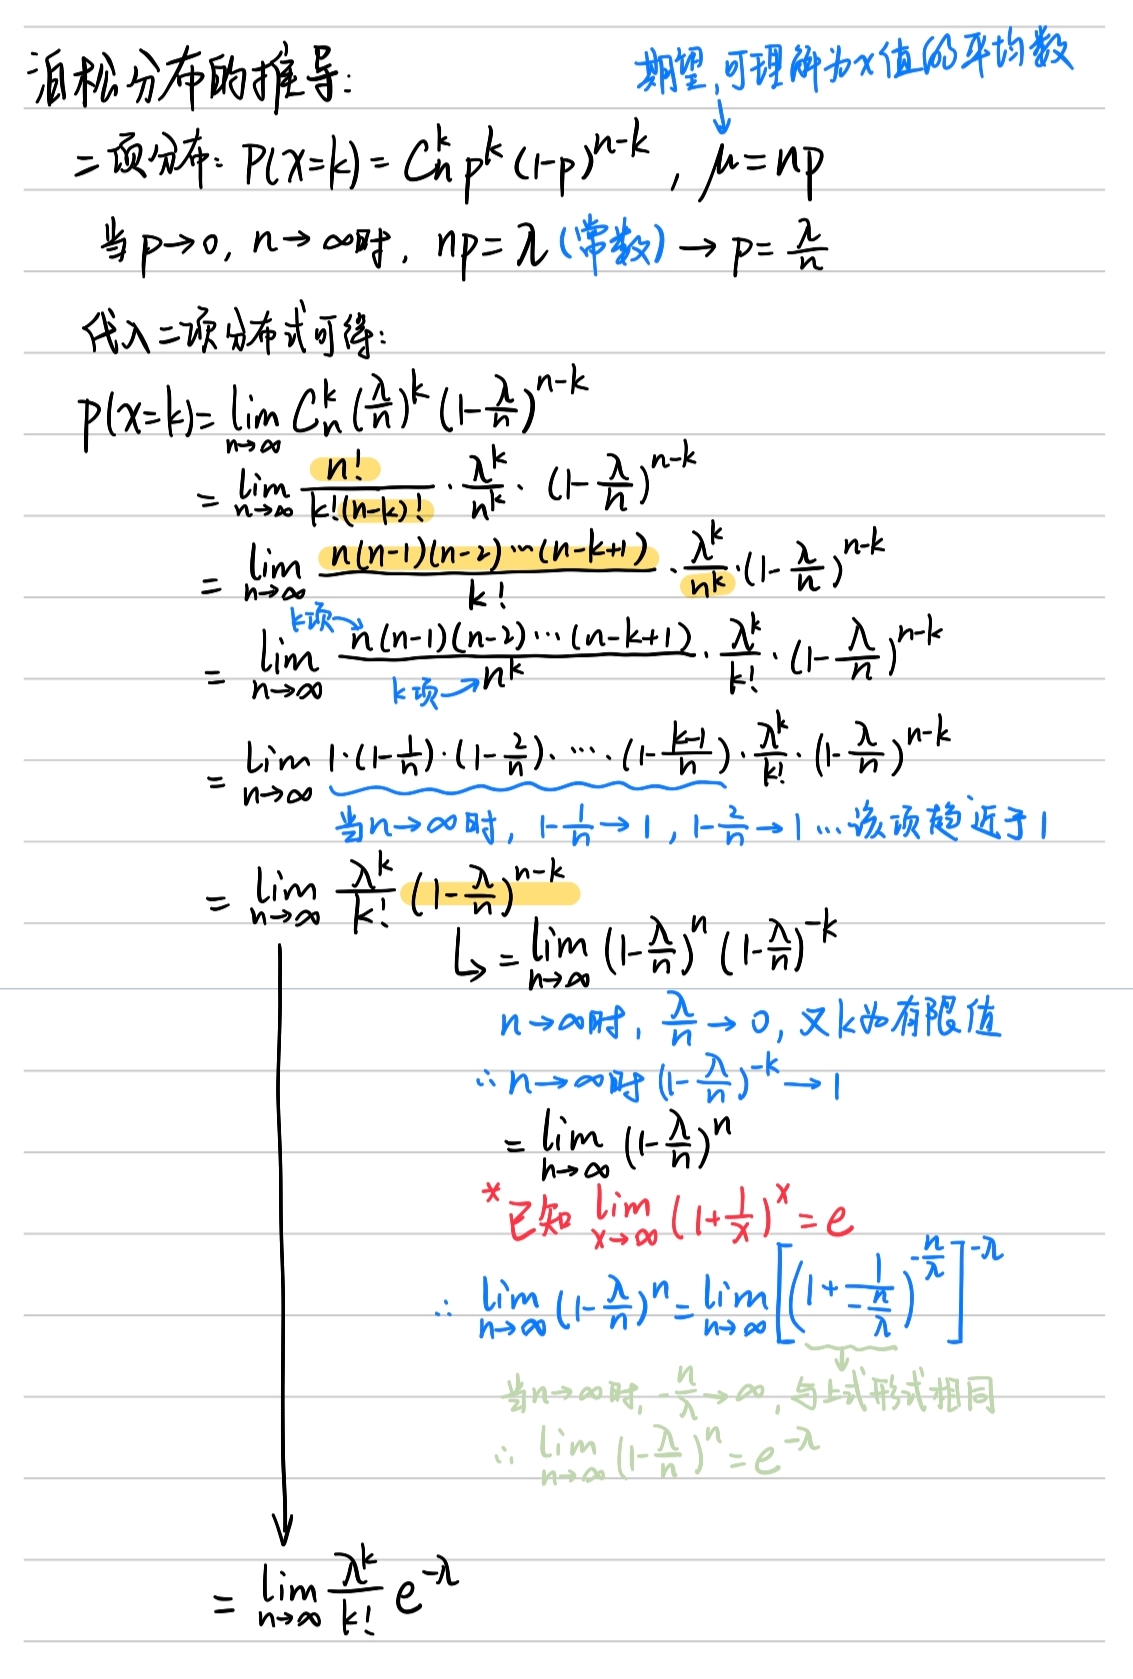 泊松分布的推导:
期望,可理解为x值的平均数
二项分布: P(X=k) = C_n^k p^k (1-p)^{n-k} , μ=np
当 p→0, n→∞时, np=λ (常数) → p=λ/n
代入二项分布式可得:
P(X=k)= lim_{n→∞} C_n^k (λ/n)^k (1-λ/n)^{n-k}
= lim_{n→∞} n!/(k!(n-k)!) · λ^k/n^k · (1-λ/n)^{n-k}
= lim_{n→∞} n(n-1)(n-2)…(n-k+1)/k! · λ^k/n^k · (1-λ/n)^{n-k}
k项→
= lim_{n→∞} n(n-1)(n-2)…(n-k+1)/n^k · λ^k/k! · (1-λ/n)^{n-k}
k项→
= lim_{n→∞} 1·(1-1/n)·(1-2/n)·…·(1-(k-1)/n) · λ^k/k! · (1-λ/n)^{n-k}
当n→∞时, 1-1/n→1, 1-2/n→1…该项趋近于1
= lim_{n→∞} λ^k/k! (1-λ/n)^{n-k}
↳ = lim_{n→∞} (1-λ/n)^n (1-λ/n)^{-k}
n→∞时, λ/n→0, 又k为有限值
∴ n→∞时 (1-λ/n)^{-k}→1
= lim_{n→∞} (1-λ/n)^n
*已知 lim_{x→∞} (1+1/x)^x = e
∴ lim_{n→∞} (1-λ/n)^n = lim_{n→∞} [(1+1/(-n/λ))^{-n/λ}]^{-λ}
当n→∞时, -n/λ→∞, 与上式形式相同
∴ lim_{n→∞} (1-λ/n)^n = e^{-λ}
= lim_{n→∞} λ^k/k! e^{-λ}